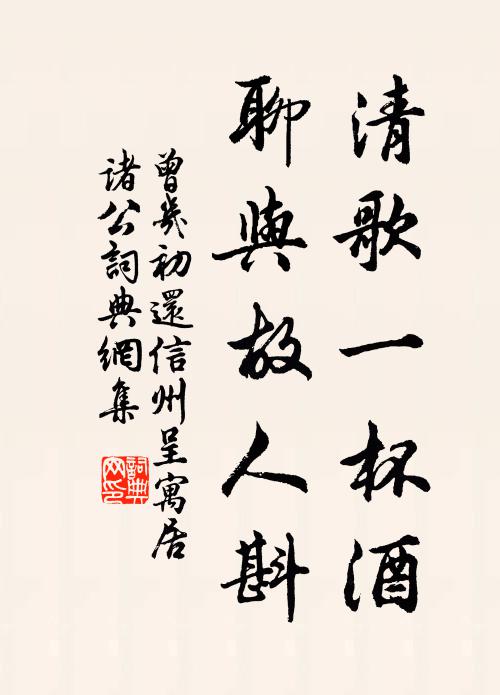 清歌一杯酒
聊與故人斟
曾幾初還信州呈寓居
諸公詞典網集
詞典网印